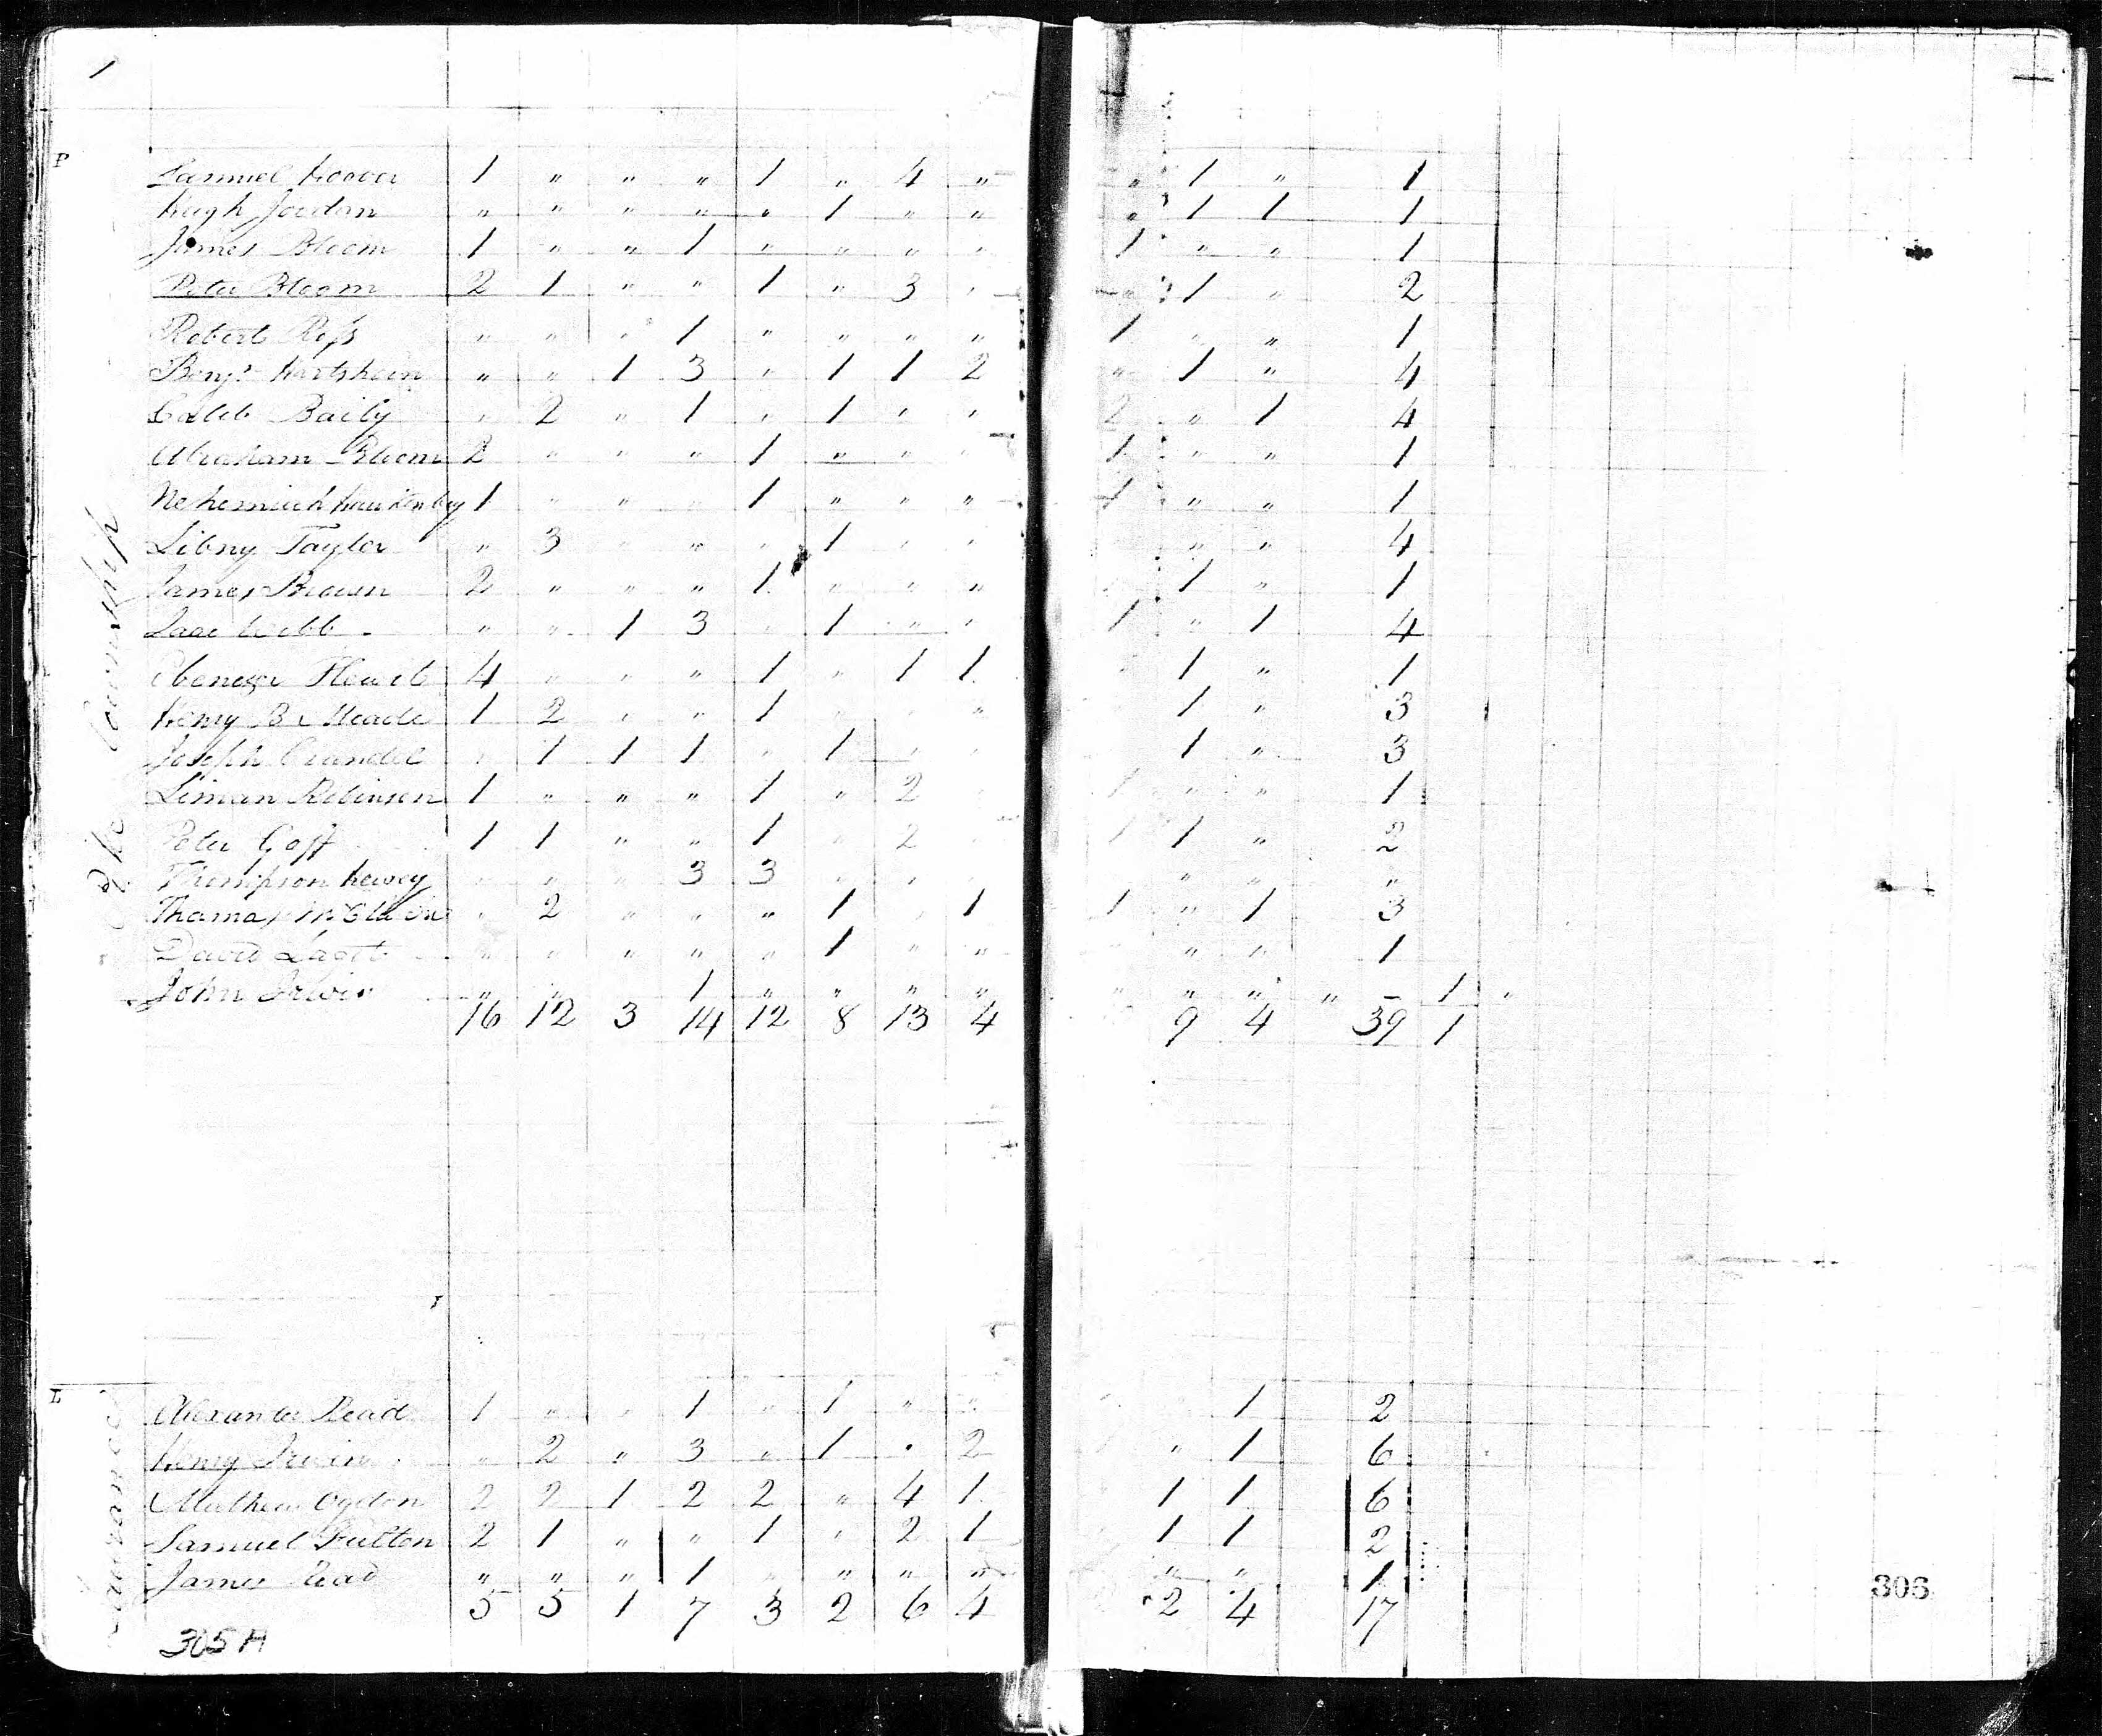 1
P
Samuel Hoover 1 " " " 1 " 4 " " 1 " 1
Hugh Jordan " " " " " 1 " " " 1 1 1
James Bloom 1 " " 1 " " " " 1 " " 1
Peter Bloom 2 1 " " 1 " 3 " " 1 " 2
Robert Ross " " " 1 " " " " 1 " " 1
Benjn " " 1 3 " 1 1 2 " 1 " 4
Caleb Baily " 2 " 1 " 1 " " 2 " 1 4
Abraham Bloom 2 " " " 1 " " " 1 " " 1
Nehemiah 1 " " " 1 " " " 1 " " 1
Libny Tayler " 3 " " " 1 " " " " 4
James Brown 2 " " " 1 " " " 1 " 1
Isaac Webb " " 1 3 " 1 " " 1 " 1 4
Ebenezer 4 " " " 1 " 1 1 1 " 1
Henry B. Meade 1 2 " " 1 " " " 1 " 3
Joseph Crandel " 1 1 1 " 1 " " 1 " 3
Liman Robinson 1 " " " 1 " 2 " 1 " " 1
Peter Goff 1 1 " " 1 " 2 " 1 1 " 2
Thompson " " " 3 3 " " " " "
Thomas " 2 " " " 1 " 1 1 " 1 3
David " " " " " 1 " " " " 1
John Irwin " " " 1 " " " " " " " " – 1 "
16 12 3 14 12 8 13 4 9 4 39 1
Pike Township
L
Alexander Read 1 " " 1 " 1 " " " 1 2
Henry Irwin " 2 " 3 " 1 " 2 " 1 6
Mathew Ogdon 2 2 1 2 2 " 4 1 1 1 6
Samuel Fulton 2 1 " " 1 " 2 1 1 1 2
James Read " " " 1 " " " " " " 1
5 5 1 7 3 2 6 4 2 4 17
305 A
306